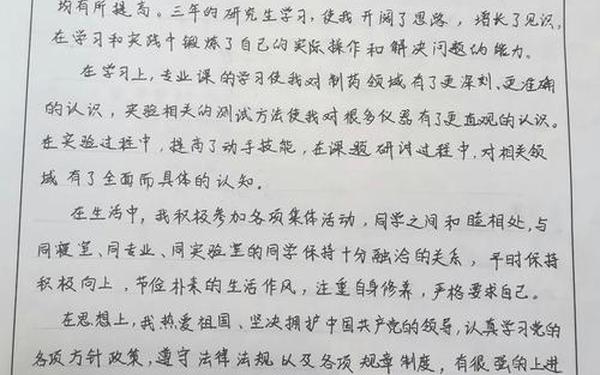 均有所提高。三年的研究生学习，使我开阔了思路，增长了见识，
在学习和实践中锻炼了自己的实际操作和解决问题的能力。
在学习上，专业课的学习使我对制药领域有了更深刻、更准确
的认识，实验相关的测试方法使我对很多仪器有了更直观的认识。
在实验过程中，提高了动手技能，在课题研讨过程中，对相关领
域有了全面而具体的认知。
在生活中，我积极参加各项集体活动，同学之间和睦相处，与
同寝室、同专业、同实验室的同学保持十分融洽的关系，平时保持
积极向上，节俭朴素的生活作风，注重自身修养，严格要求自己。
在思想上，我热爱祖国、坚决拥护中国共产党的领导，认真学习党的
各项方针政策，遵守法律法规以及各项规章制度，有很强的上进